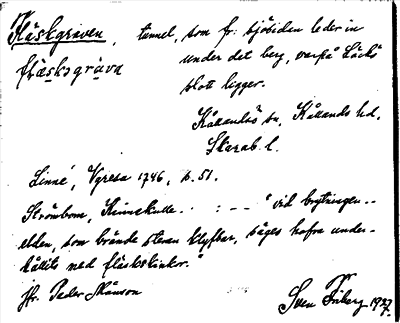 Fläskgraven, tunnel, som fr. sjösidan leder in
fläsksgrava under det berg, varpå Läckö
slott ligger.
Kållandsö sn, Kållands hd,
Skarab. l.
Linné, Vgresa 1746, s. 51.
Strömbom, Kinnekulle. : - - "vid brytningen..
elden, som brände stenen klyfbar, säges hafva under-
hållits med fläskskinkor."
Jfr. Peder Månson
Sven Friberg 1927.